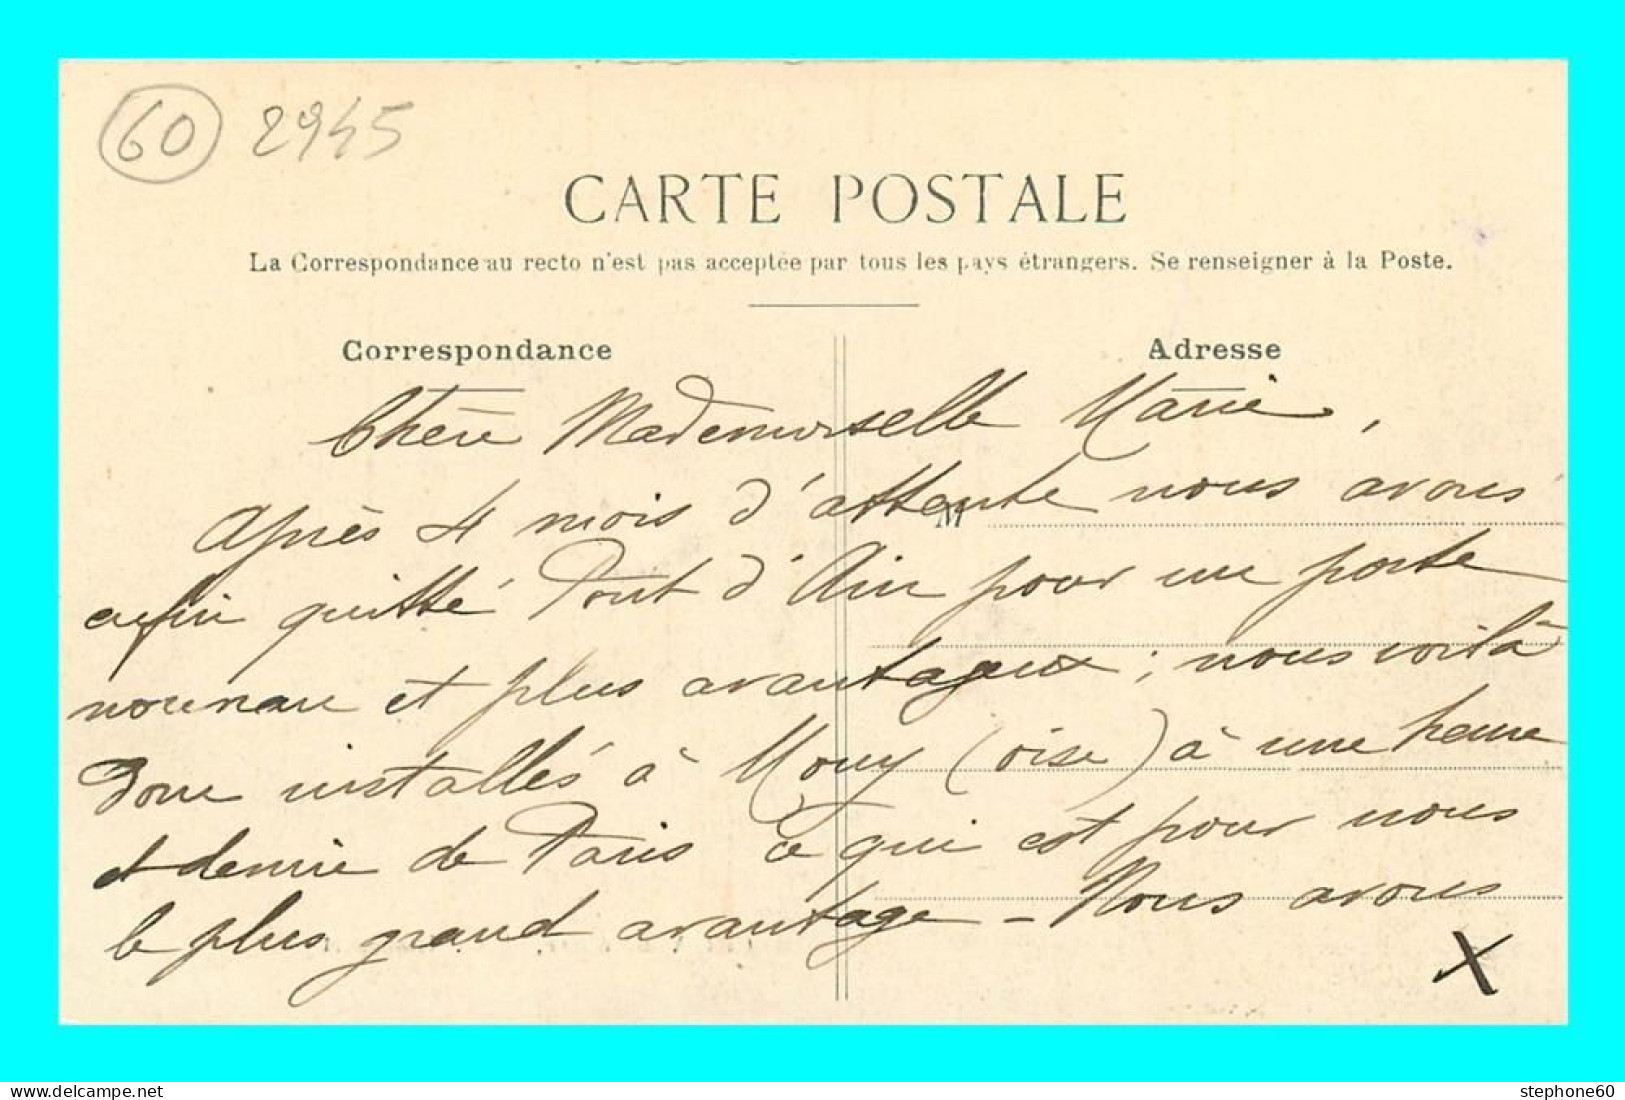 60 2945
CARTE POSTALE
La Correspondance au recto n'est pas acceptée par tous les pays étrangers. Se renseigner à la Poste.
Correspondance Adresse
Chère Mademoiselle Marie,
Après 4 mois d'attente nous avons
M
enfin quitté Pont d'Ain pour un poste
nouveau et plus avantageux ; nous voilà
donc installés à Mouy (oise) à une heure
et demie de Paris ce qui est pour nous
le plus grand avantage - Nous avons
X
stephone60